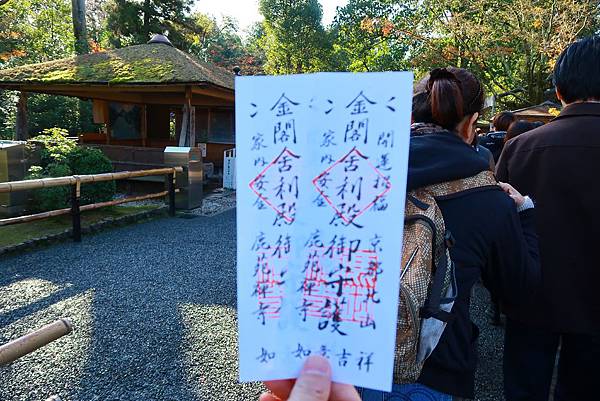 開運招福 京都北山
金閣舎利殿御守護
家内安全 鹿苑禅寺
如意吉祥
金閣舎利殿御
家内安全 鹿苑禅寺
如